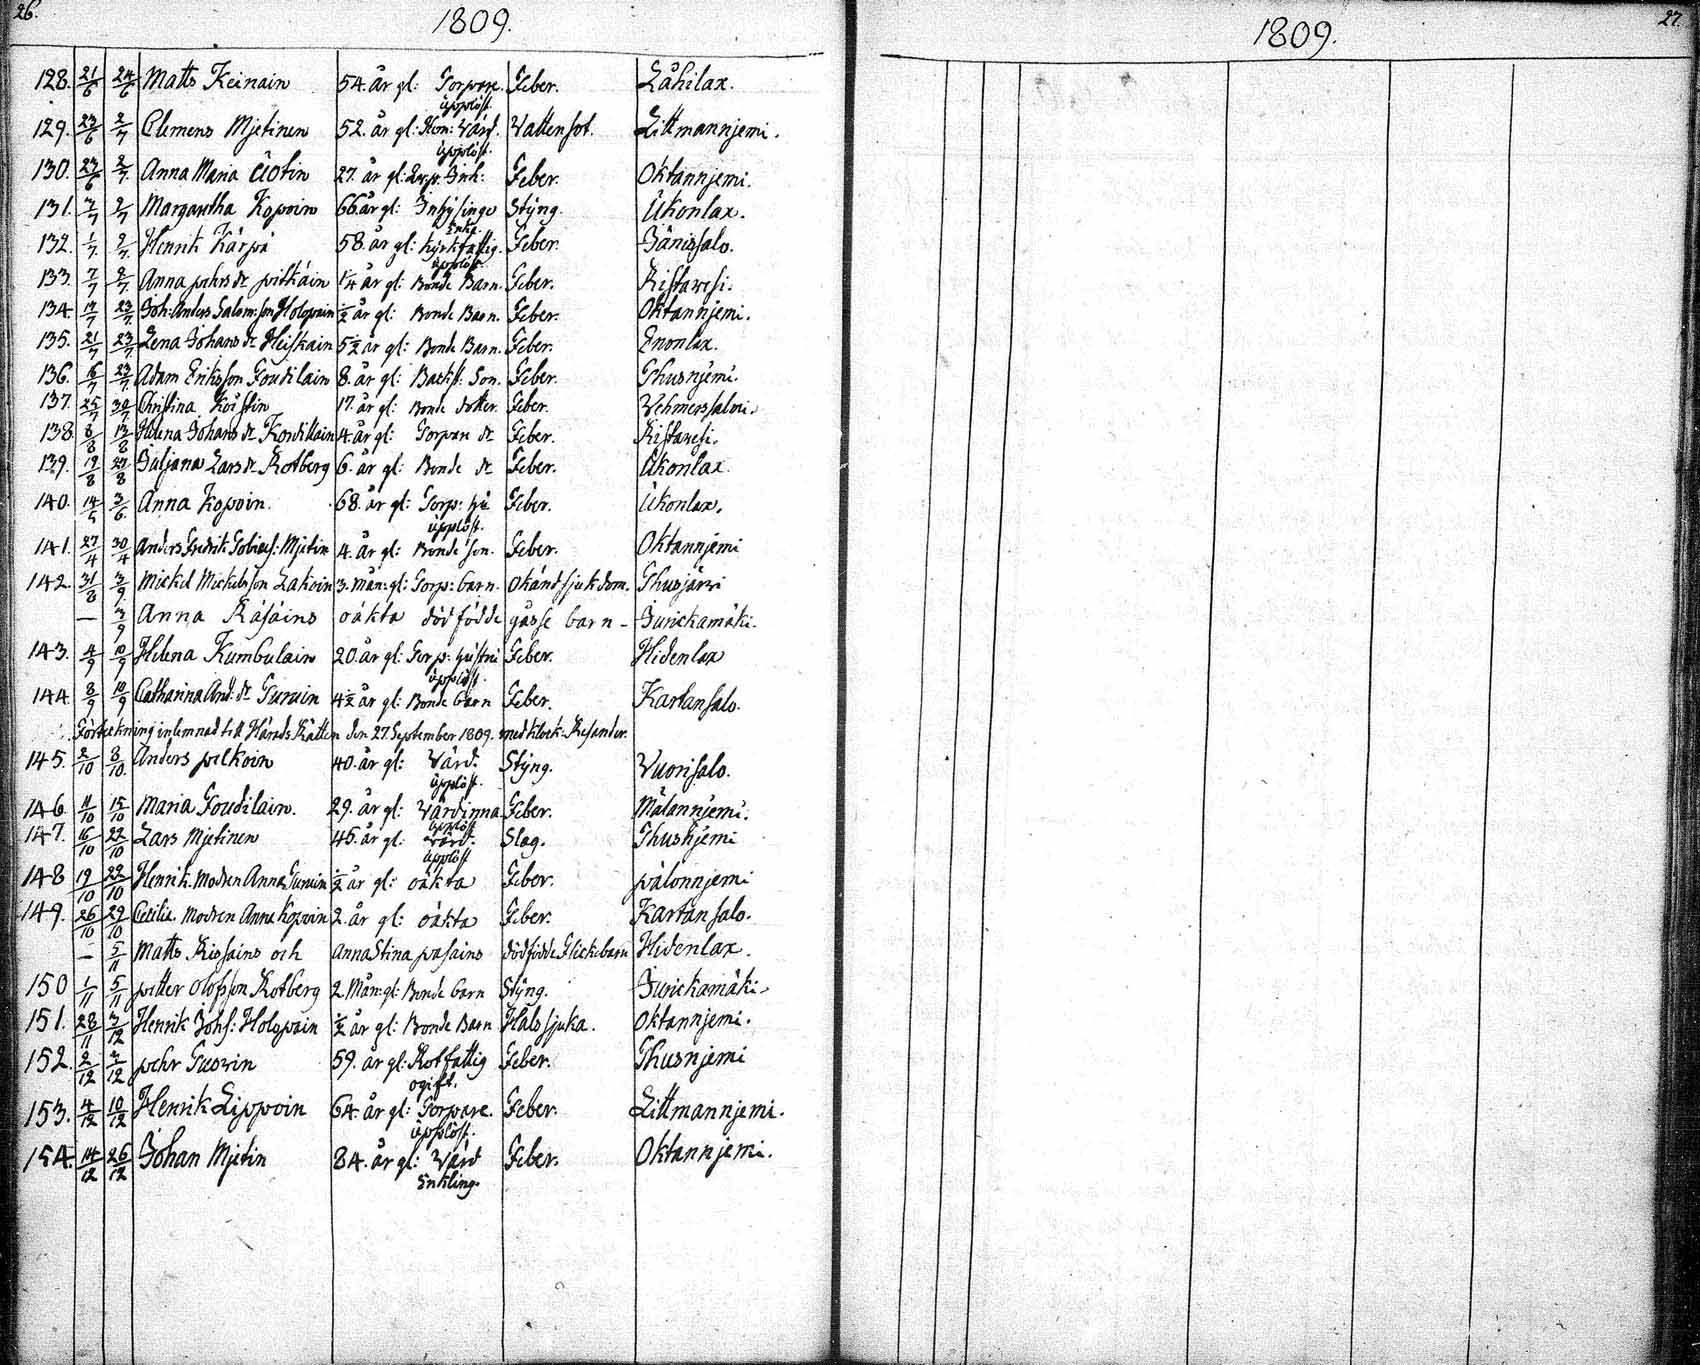 26.
1809.
128. 21/6 24/6 Matts Keinain 54. år gl: Torpare. Feber. Låhilax.
upplöst.
129. 23/6 2/7 Clemens Mjetinen 52. år gl: Kon: Värd. Vattensot. Littmannjemi.
upplöst.
130. 23/6 2/7 Anna Maria 27. år gl: Inh: Feber. Oktannjemi.
131. 3/7 9/7 Margaretha Kopoin 66. år gl: Inhysinge Styng. Ukonlax.
Enka.
132. 1/7 9/7 Henrik Kärpä 58. år gl: kyrkfattig. Feber. Jänissalo.
upplöst.
133. 7/7 9/7 Anna pehrs dr pitkäin 1/4 år gl: Bonde Barn. Feber. Ristavesi.
134 17/7 23/7 Joh: Anders Salom: son Holopain 1/2 år gl: Bonde Barn. Feber. Oktannjemi.
135. 21/7 23/7 Lena Johans dr Heiskain 5 1/2 år gl: Bonde Barn. Feber. Enonlax.
136. 16/7 23/7 Adam Eriksson Toudilain 8. år gl: Backst: Son. Feber. Ihusnjemi.
137. 25/7 30/7 Christina Koistin 17. år gl: Bonde dotter. Feber. Vehmerssalmi.
138. 8/8 13/8 Johans dr Kordilain 4. år gl: Torpare dr Feber. Ristavesi.
139. 19/8 27/8 Juljana Lars dr Rotberg 6. år gl: Bonde dr Feber. Ukonlax.
140. 14/5 3/6. Anna Kopoin. 68. år gl: Torp: hu Feber. Ukonlax.
upplöst.
141. 27/4 30/4 Anders Fredrik Tobiaes: Mjetin 4. år gl: Bonde son. Feber. Oktannjemi
142. 31/8 3/9. Mickel Mickelsson Lakoin 3. Mån: gl: Torp: barn. Okänd sjukdom. Ihusjärvi
— 3/9 Anna Räsäins oäkta död födde gåsse barn - Jurickamäki.
143. 4/9 10/9 Helena Kumbulain 20. år gl: Torp: hustru Feber. Hidenlax
upplöst.
144 8/9 10/9 Catharina And: dr Turuin 4 1/2 år gl: Bonde barn Feber. Kartansalo.
Förtekning inlemnad till Härads Rätten den 27. September 1809. med Klock: Resander.
145. 2/10 8/10. Anders pelkoin 40. år gl: Värd. Styng. Vuorisalo.
upplöst.
146. 11/10 15/10 Maria Toudilain. 29. år gl: Värdinna Feber. Målannjemi.
upplöst
147. 16/10 22/10 Lars Mjetinen 45. år gl: värd. Slag. Ihusnjemi
upplöst
148 19/10 22/10 Henrik. Modren Anna Turuin 1/2 år gl: oäkta Feber. pålonnjemi
149. 26/10 29/10 Cecilia. Modren Anna Kopoin 2. år gl: oäkta Feber. Kartansalo.
— 5/11 Matts Rissains och Anna Stina pasains dödfödde Flickebarn Hidenlax.
150 1/11 5/11 petter Olofsson Rotberg 2. Mån: gl: Bonde barn Styng. Jurickamäki.
151. 28/11 3/12 Henrik Johs: Holopain 1/2 år gl: Bonde Barn Halssjuka. Oktannjemi.
152. 2/12 3/12 pehr Tuovin 59. år gl: Rotfattig Feber. Ihusnjemi
ogift.
153. 4/12 10/12 Henrik Lippoin 64. år gl: Torpare. Feber. Littmannjemi.
upplöst.
154. 14/12 26/12 Johan Mjetin 84. år gl: Värd Feber. Oktannjemi.
Enkling.
1809.
27.